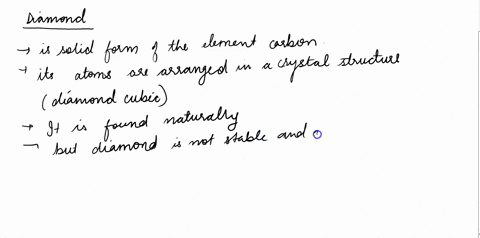 Diamond
→ is solid form of the element carbon.
→ its atoms are arranged in a crystal structure
(diamond cubic)
→ It is found naturally
→ but diamond is not stable and